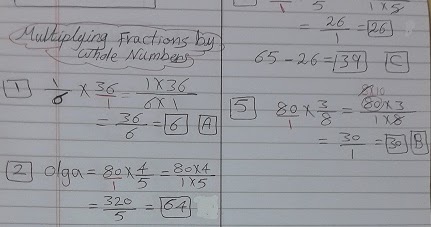 Multiplying Fractions by
Whole Numbers
1 1/6 × 36/1 = 1×36/6×1
= 36/6 = 6 A
2 Olga = 80/1 × 4/5 = 80×4/1×5
= 320/5 = 64
1 5 1×5
= 26/1 = 26
65 - 26 = 39 C
5 80/1 × 3/8 = 80×3/1×8
= 30/1 = 30 B